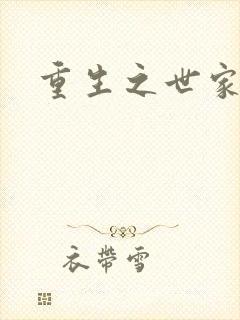 重生之世家
衣带雪